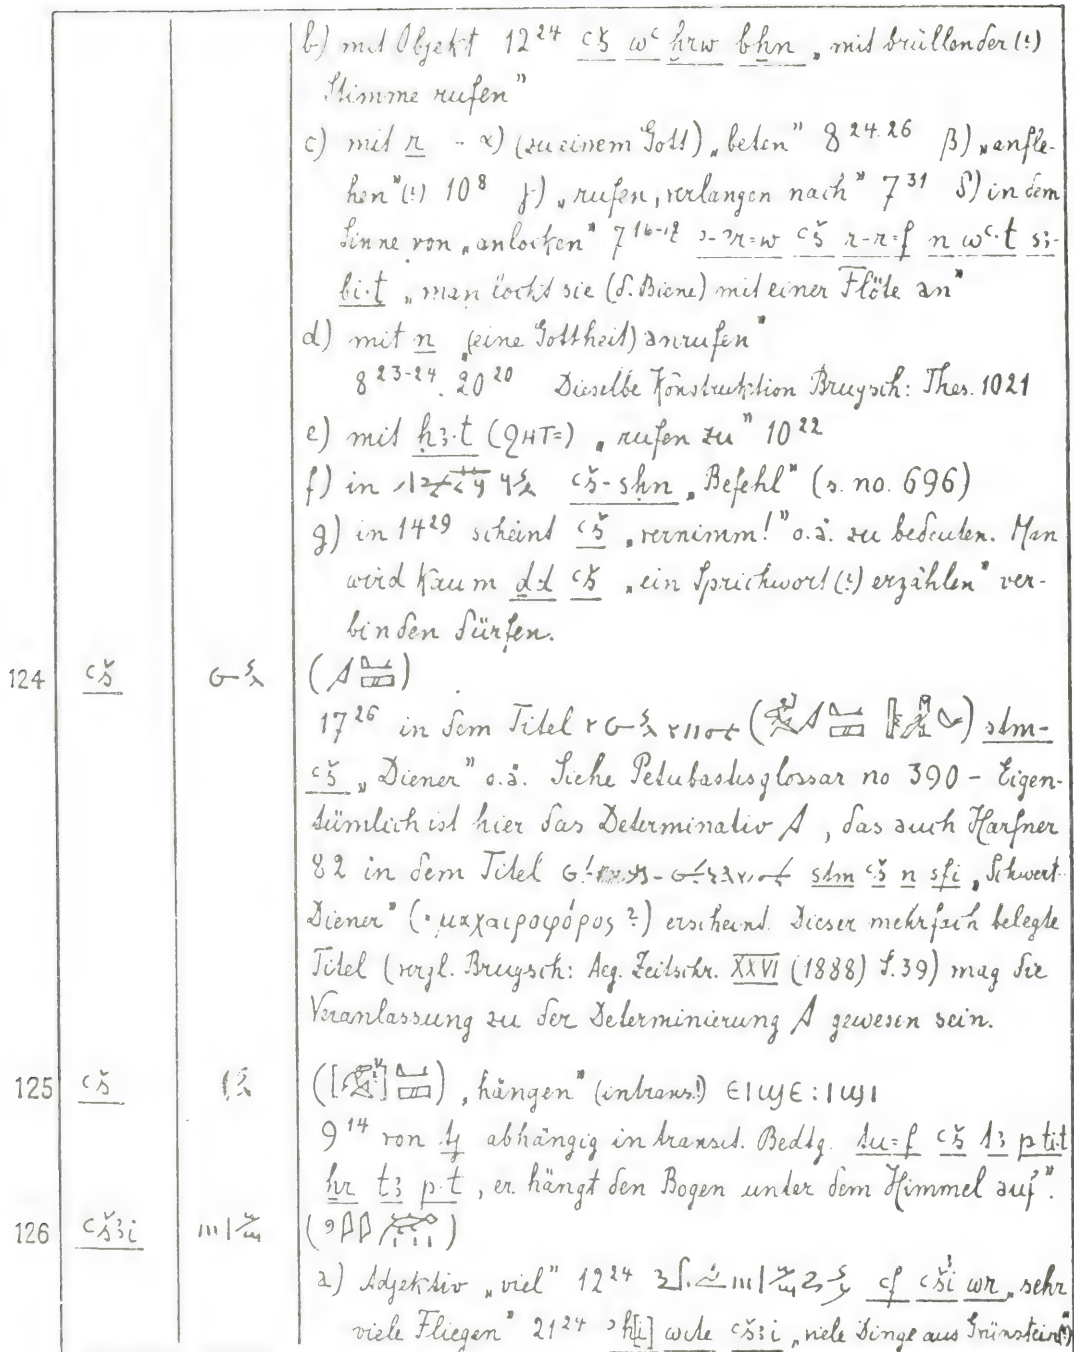 b) mit Objekt 12²⁴ ꜥš wꜥ hrw bhn „mit brüllender(?)
Stimme rufen"
c) mit r - α) (zu einem Gott) „beten" 8²⁴·²⁶ β) „anfle-
hen"(?) 10⁸ γ) „rufen, verlangen nach" 7³¹ δ) in dem
Sinne von „anlocken" ꜥš r-r=f n wꜥ.t sꜣ-
bi.t „man lockt sie (d. Biene) mit einer Flöte an"
d) mit n (eine Gottheit) anrufen"
8²³⁻²⁴. 20²⁰ Dieselbe Konstruktion Brugsch: Thes. 1021
e) mit ḥꜣ.t (ϩⲏⲧ=) „rufen zu" 10²²
f) in ꜥš-sḥn „Befehl" (s. no. 696)
g) in 14²⁹ scheint ꜥš „vernimm!" o.ä. zu bedeuten. Man
wird kaum ḏd ꜥš „ein Sprichwort(?) erzählen" ver-
binden dürfen.
124 ꜥš
17²⁶ in dem Titel stm-
ꜥš „Diener" o.ä. Siehe Petubastisglossar no 390 - Eigen-
tümlich ist hier das Determinativ, das auch Harfner
82 in dem Titel stm ꜥš n sfi „Schwert-
Diener" (= μαχαιροφόρος ?) erscheint. Dieser mehrfach belegte
Titel (vergl. Brugsch: Aeg. Zeitschr. XXVI (1888) S. 39) mag die
Veranlassung zu der Determinierung gewesen sein.
125 ꜥš „hängen" (intrans!) ⲉⲓϣⲉ : ⲓϣⲓ
9¹⁴ von abhängig in transit. Bedtg. ꜥš
ẖr tꜣ p.t „er hängt den Bogen unter dem Himmel auf".
126 ꜥšꜣi
a) Adjektiv „viel" 12²⁴ ꜥf ꜥšꜣi wr „sehr
viele Fliegen" 21²⁴ ꜥšꜣi „viele Dinge aus Grünstein(?)